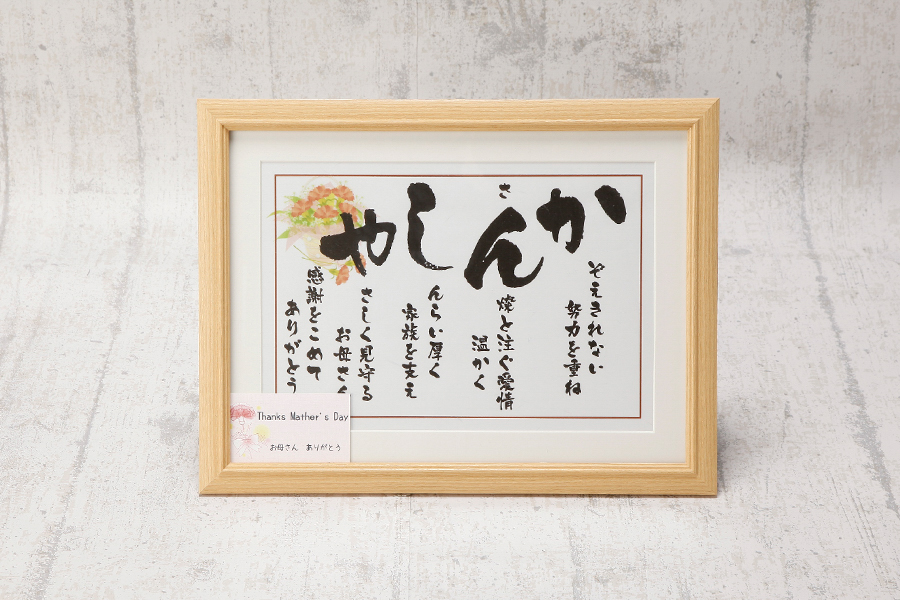 かぞえきれない
努力を重ね
さん燦と注ぐ愛情
温かく
しんらい厚く
家族を支え
やさしく見守る
お母さん
感謝をこめて
ありがとう
Thanks Mather's Day
お母さん ありがとう